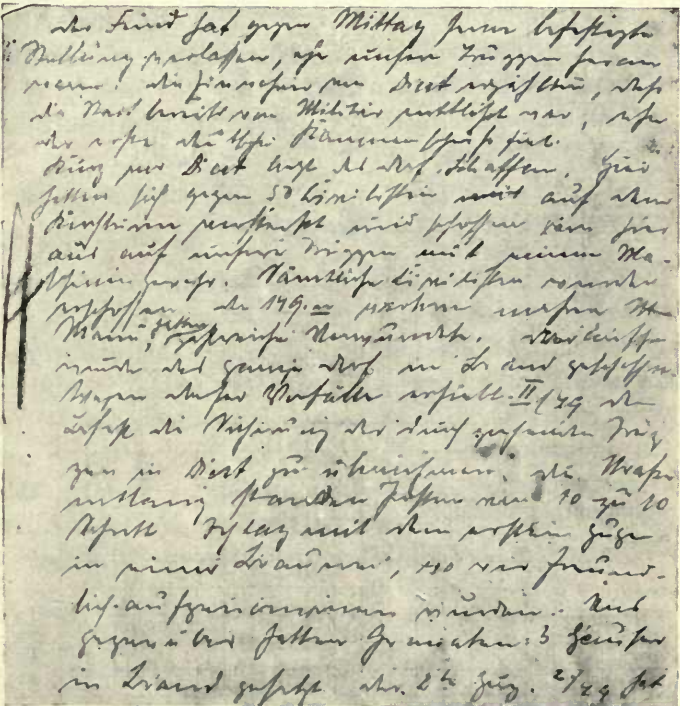 der Feind hat gegen Mittag seine befestigte
Stellung verlassen, ehe unsere Truppen heran
waren. die Einwohner von Diest erzählten, daß
die Stadt bereits von Militär entblößt war, ehe
der erste deutsche Kanonenschuß fiel.
Kurz vor Diest liegt das Dorf Schaffen. Hier
hatten sich gegen 50 Civilisten auf dem
Kirchturm versteckt und schossen von hier
aus auf unsere Truppen mit einem Ma-
schinengewehr. Sämtliche Civilisten wurden
erschossen. die 149. verloren mehrere
Mann, hatten zahlreiche Verwundete. daraufhin
wurde das ganze Dorf in Brand geschossen.
Wegen dieser Vorfälle erhielt II/49 den
Befehl die Sicherung der durchziehenden Trup
pen in Diest zu übernehmen. die Straße
entlang standen Posten von 10 zu 10
Schritt. Ich lag mit dem ersten Zuge
in einer Brauerei, wo wir freund-
lich aufgenommen wurden. Uns
gegenüber hatten Granaten 3 Häuser
in Brand gesetzt. der 2te Zug hat